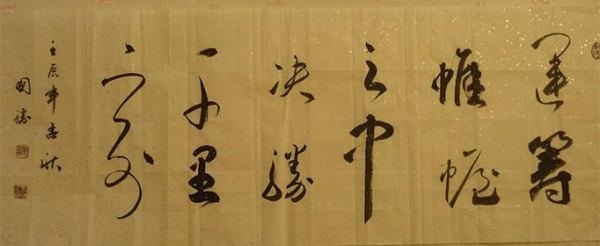 運籌
帷幄
之中
决勝
千里
之外
壬辰年秋
國勝